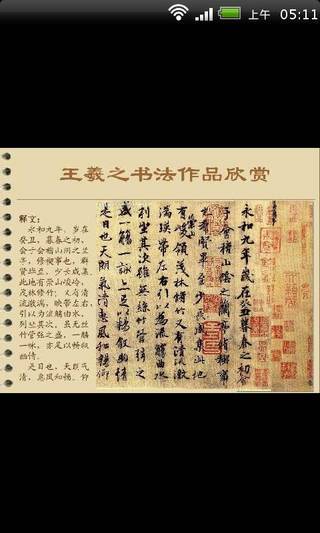 上午 05:11
王羲之书法作品欣赏
释文：
永和九年，岁在
癸丑，暮春之初，
会于会稽山阴之兰
亭，修禊事也。群
贤毕至，少长咸集。
此地有崇山峻岭，
茂林修竹；又有清
流激湍，映带左右，
引以为流觞曲水，
列坐其次。虽无丝
竹管弦之盛，一觞
一咏，亦足以畅叙
幽情。
是日也，天朗气
清，惠风和畅。仰
永和九年歲在癸丑暮春之初會
于會稽山陰之蘭亭脩禊事
也羣賢畢至少長咸集此地
有崇山峻領茂林脩竹又有清流激
湍暎帶左右引以為流觴曲水
列坐其次雖無絲竹管弦之
盛一觴一詠亦足以暢敘幽情
是日也天朗氣清惠風和暢仰